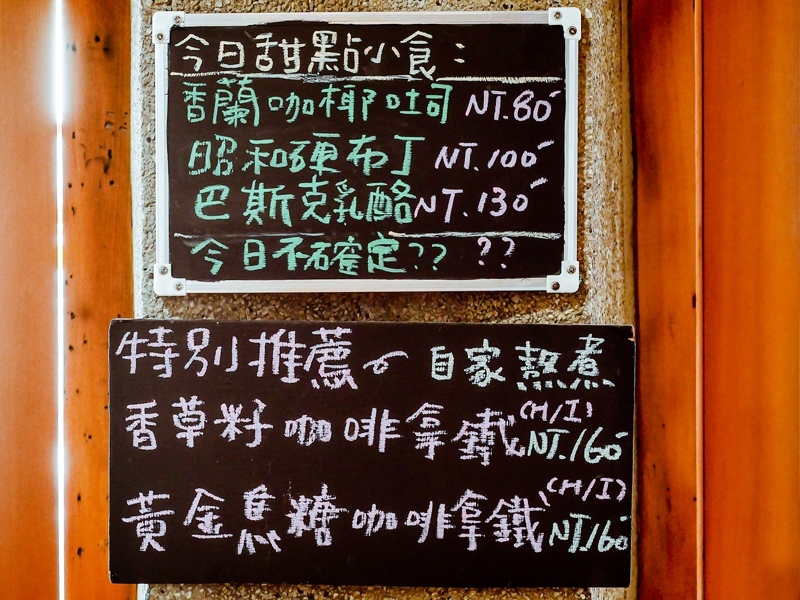 今日甜點小食：
香蘭咖椰吐司 NT.80
昭和硬布丁 NT.100
巴斯克乳酪 NT.130
今日不確定?? ??
特別推薦 自家熬煮
香草籽咖啡拿鐵 (H/I) NT.160
黃金焦糖咖啡拿鐵 (H/I) NT.160